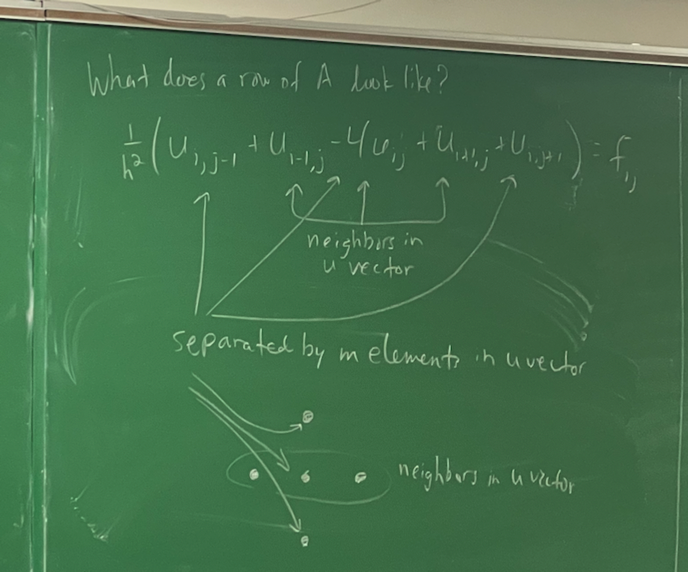 What does a row of A look like?
1/h² (u_{i,j-1} + u_{i-1,j} - 4u_{ij} + u_{i+1,j} + u_{i,j+1}) = f_{ij}
neighbors in
u vector
separated by m elements in u vector
neighbors in u vector